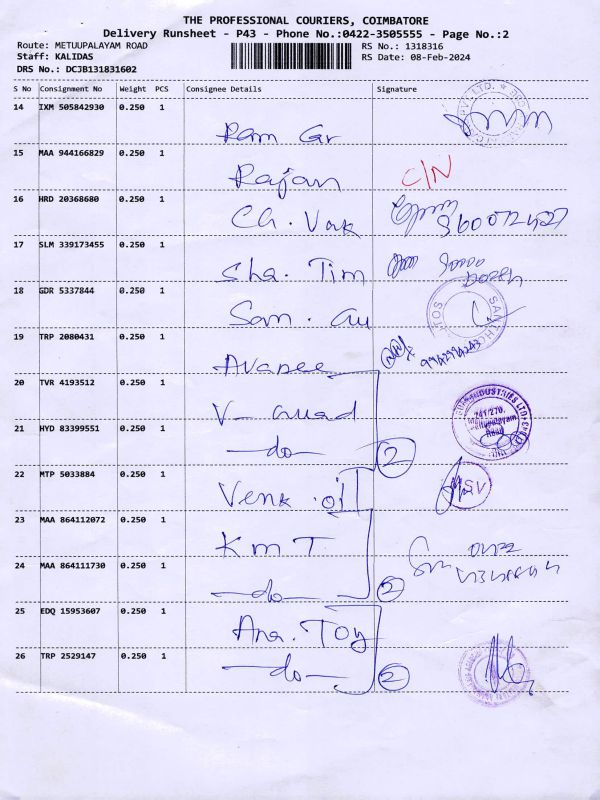 THE PROFESSIONAL COURIERS, COIMBATORE
Delivery Runsheet - P43 - Phone No.:0422-3505555 - Page No.:2
Route: METUUPALAYAM ROAD
RS No.: 1318316
Staff: KALIDAS
RS Date: 08-Feb-2024
DRS No.: DCJB131831602
S No Consignment No Weight PCS Consignee Details Signature
14 IXM 505842930 0.250 1
Ram Gr
15 MAA 944166829 0.250 1
Rajan C/N
16 HRD 20368680 0.250 1
Ch. Vak
17 SLM 339173455 0.250 1
Sha. Tim
18 GDR 5337844 0.250 1
San. au
19 TRP 2080431 0.250 1
Avanee
20 TVR 4193512 0.250 1
V- Guard
21 HYD 83399551 0.250 1
—do— 2
22 MTP 5033884 0.250 1
Venk. oil
SV
23 MAA 864112072 0.250 1
K m T.
24 MAA 864111730 0.250 1
—do— 2
25 EDQ 15953607 0.250 1
Ana. Toy
26 TRP 2529147 0.250 1
—do— 2